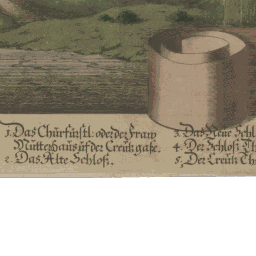 1. Das Churfürstl: oder der Fraw
Mütter haus uf der Creutz gaße.
2. Das Alte Schloß.
3. Das Neue Schl
4. Der Schloß Th
5. Der Creütz Th